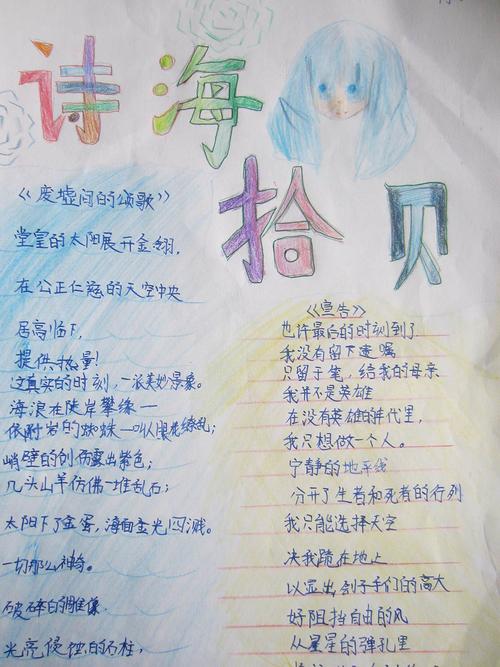 诗海
拾贝
《废墟间的颂歌》
堂皇的太阳展开金翅,
在公正仁慈的天空中央
居高临下,
提供热量!
这真实的时刻,一派美妙景象。
海浪在陡岸攀缘一
依附岩的蜘蛛一叫人眼花缭乱;
峭壁的创伤露出紫色;
几头山羊仿佛一堆乱石;
太阳下了金蛋,海面金光四溅。
一切那么神奇。
破碎的雕像,
光亮侵蚀的石柱,
《宣告》
也许最后的时刻到了
我没有留下遗嘱
只留于笔,给我的母亲
我并不是英雄
在没有英雄的年代里,
我只想做一个人。
宁静的地平线
分开了生者和死者的行列
我只能选择天空
决我跪在地上
以显出刽子手们的高大
好阻挡自由的风
从星星的弹孔里